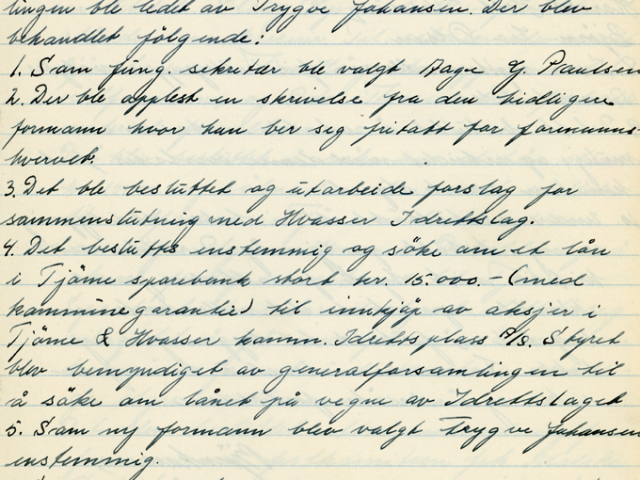 lingen ble ledet av Trygve Johansen. Der blev
behandlet følgende:
1. Som fung. sekretær ble valgt Aage G. Paulsen
2. Der ble opplest en skrivelse fra den tidligere
formann hvor han ber seg fritatt for formanns-
hvervet.
3. Det ble besluttet og utarbeide forslag for
sammenslutning med Hvasser Idrettslag.
4. Det besluttes enstemmig og söke om et lån
i Tjöme sparebank stort kr. 15.000.- (med
kommunegaranti) til innkjøp av aksjer i
Tjöme & Hvasser komm. Idrettsplass A/S. Styret
blev bemyndiget av generalforsamlingen til
å söke om lånet på vegne av Idrettslaget
5. Som ny formann blev valgt Trygve Johansen
enstemmig.